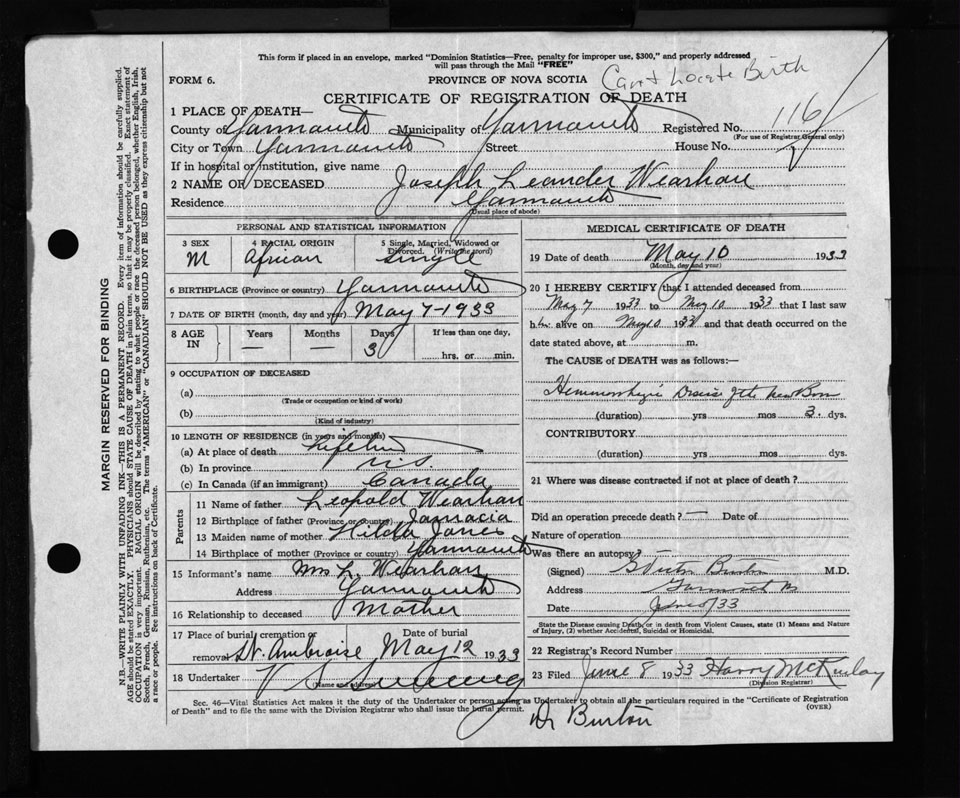 This form if placed in an envelope, marked "Dominion Statistics—Free, penalty for improper use, $300," and properly addressed
will pass through the Mail "FREE"
FORM 6.
PROVINCE OF NOVA SCOTIA
Can't Locate Birth
CERTIFICATE OF REGISTRATION OF DEATH
1 PLACE OF DEATH—
County of Yarmouth Municipality of Yarmouth Registered No. 116
(For use of Registrar General only)
City or Town Yarmouth Street House No.
If in hospital or institution, give name
2 NAME OF DECEASED Joseph Leander Wearhan
Residence Yarmouth
(Usual place of abode)
PERSONAL AND STATISTICAL INFORMATION
3 SEX 4 RACIAL ORIGIN 5 Single, Married, Widowed or
Divorced. (Write the word)
M African Single
6 BIRTHPLACE (Province or country) Yarmouth
7 DATE OF BIRTH (month, day and year) May 7-1933
8 AGE IN Years Months Days If less than one day,
— — 3 hrs. or min.
9 OCCUPATION OF DECEASED
(a)
(Trade or occupation or kind of work)
(b)
(Kind of industry)
10 LENGTH OF RESIDENCE (in years and months)
(a) At place of death Lifetime
(b) In province N.S.
(c) In Canada (if an immigrant) Canada
Parents
11 Name of father Leopold Wearhan
12 Birthplace of father (Province or country) Jamacia
13 Maiden name of mother Hilda Jones
14 Birthplace of mother (Province or country) Yarmouth
15 Informant's name Mrs L. Wearhan
Address Yarmouth
16 Relationship to deceased Mother
17 Place of burial cremation or Date of burial
removal St. Ambroise May 12 1933
18 Undertaker V S Sweeney
(Name and address)
MEDICAL CERTIFICATE OF DEATH
19 Date of death May 10 1933
(Month, day and year)
20 I HEREBY CERTIFY that I attended deceased from
May 7 1933 to May 10 1933 that I last saw
him alive on May 10 1933 and that death occurred on the
date stated above, at m.
The CAUSE OF DEATH was as follows:—
Hemmorhagic Disease of the New Born
(duration) yrs mos 3 dys.
CONTRIBUTORY
(duration) yrs mos dys.
21 Where was disease contracted if not at place of death?
Did an operation precede death? — Date of
Nature of operation
Was there an autopsy?
(Signed) Burton M.D.
Address Yarmouth NS
Date June 8/33
State the Disease causing Death, or in death from Violent Causes, state (1) Means and Nature
of Injury, (2) whether Accidental, Suicidal or Homicidal.
22 Registrar's Record Number
23 Filed June 8 1933 Harry McKinlay
(Division Registrar)
Sec. 46—Vital Statistics Act makes it the duty of the Undertaker or person acting as Undertaker to obtain all the particulars required in the "Certificate of Registration
of Death" and to file the same with the Division Registrar who shall issue the burial permit.
(OVER)
Dr Burton
MARGIN RESERVED FOR BINDING
N.B.—WRITE PLAINLY WITH UNFADING INK—THIS IS A PERMANENT RECORD. Every item of information should be carefully supplied.
AGE should be stated EXACTLY. PHYSICIANS should STATE CAUSE OF DEATH in plain terms, so that it may be properly classified. Exact statement of
OCCUPATION is very important. RACIAL ORIGIN will be described by stating to what people or race the deceased person belonged, whether English, Irish,
Scotch, French, German, Russian, Ruthenian, etc. The terms "AMERICAN" or "CANADIAN" SHOULD NOT BE USED as they express citizenship but not
a race or people. See instructions on back of Certificate.